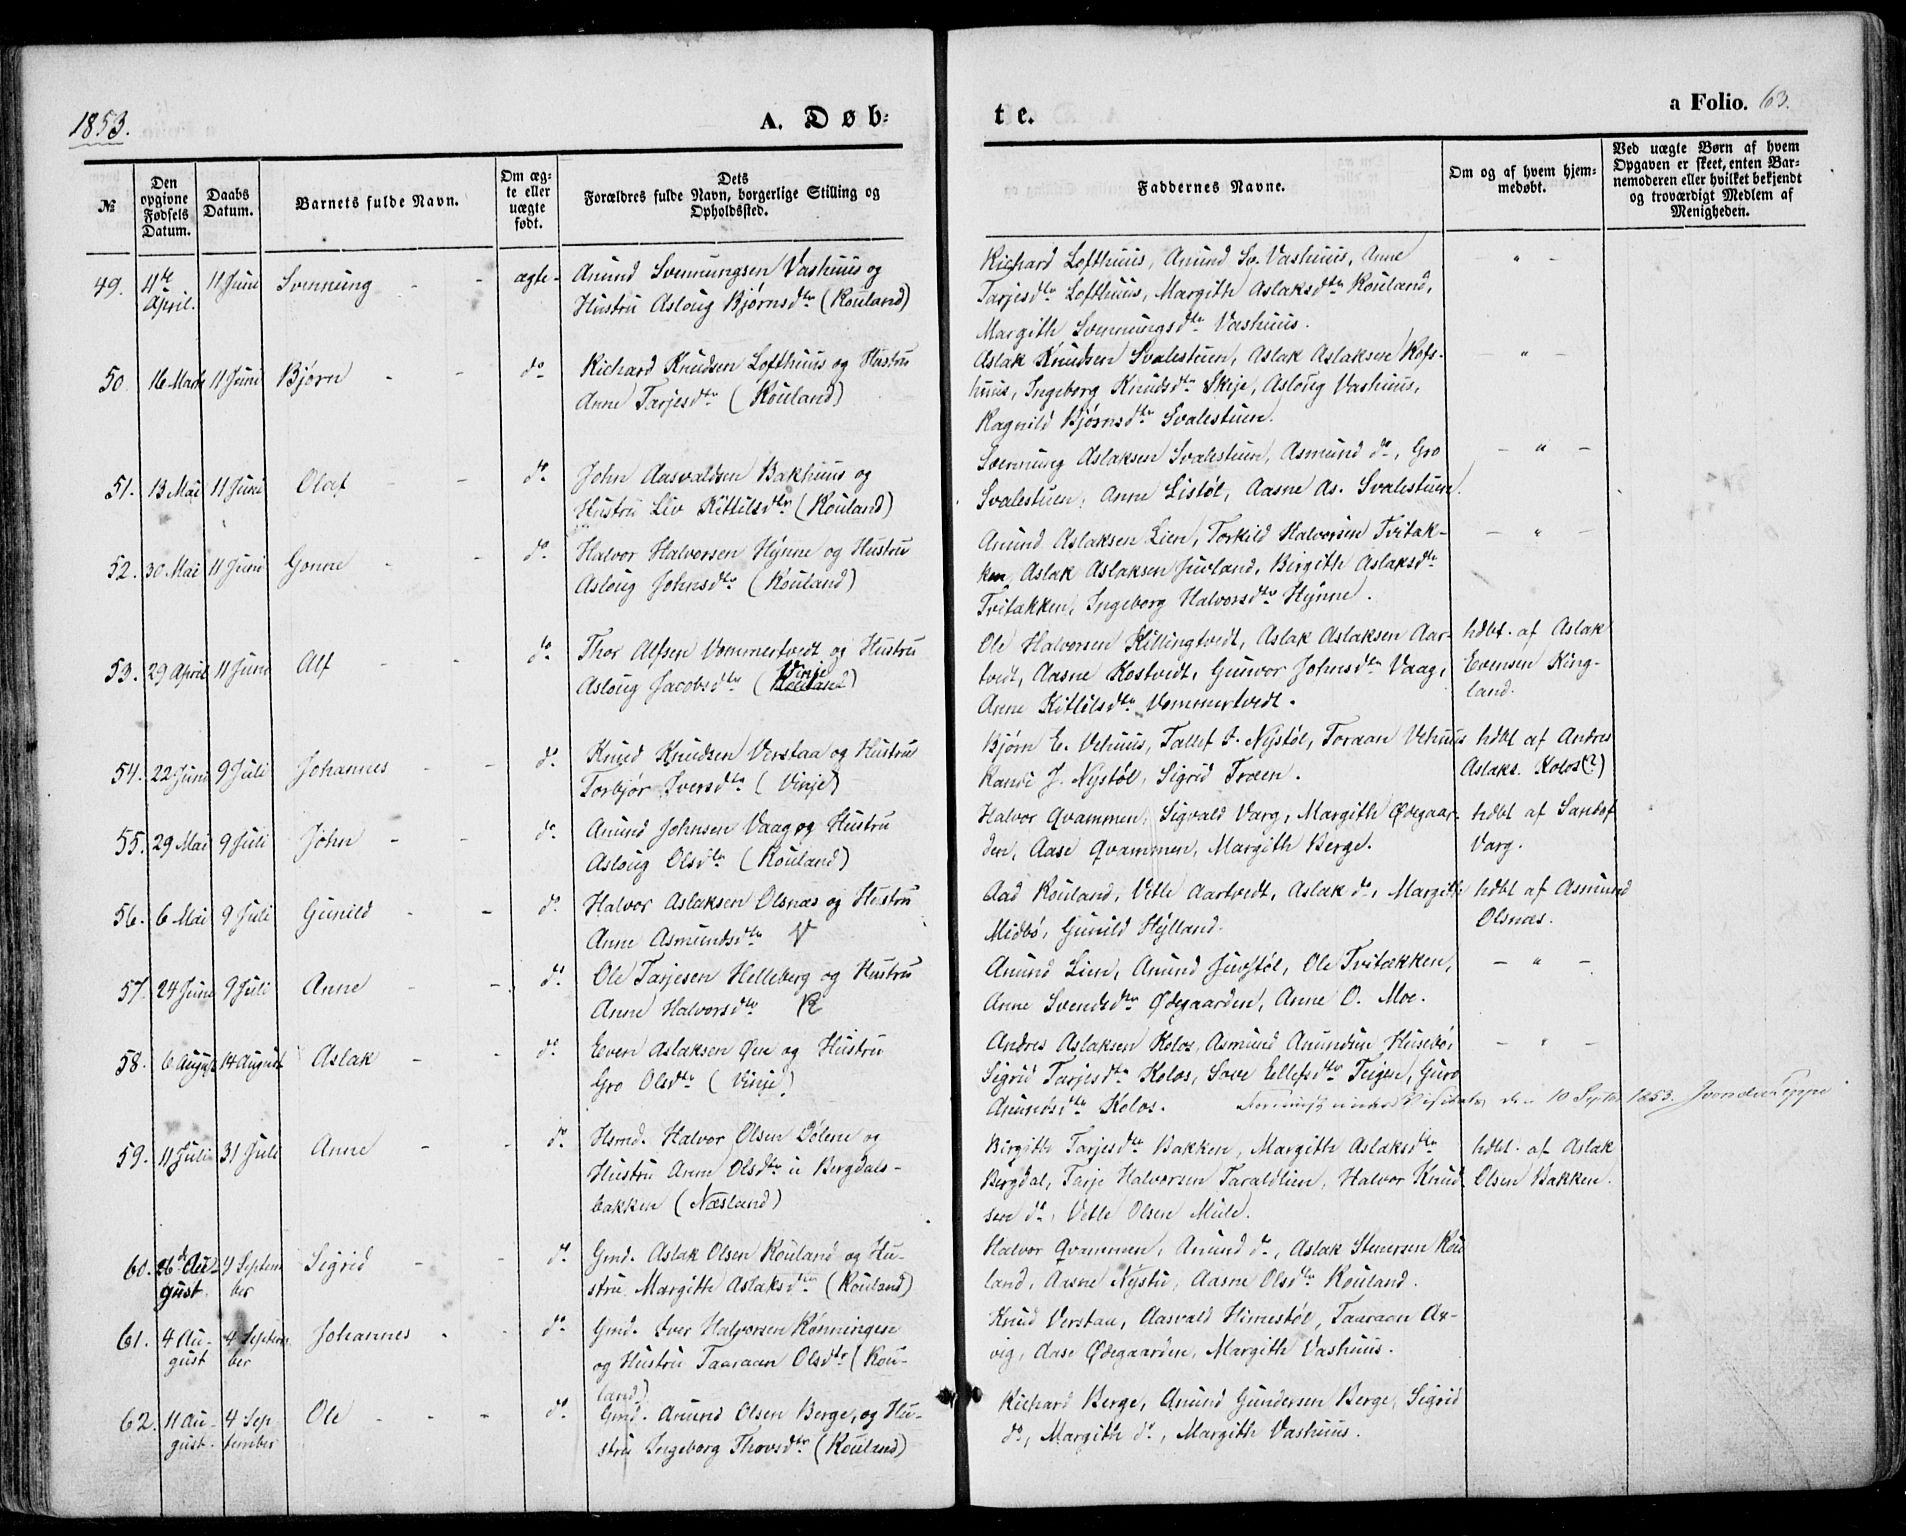 1853.
A. Døb-
te.
a Folio. 63.
№
Den opgivne Fødsels Datum.
Daabs Datum.
Barnets fulde Navn.
Om ægte eller uægte født.
Dets Forældres fulde Navn, borgerlige Stilling og Opholdssted.
Faddernes Navne.
Om og af hvem hjemmedøbt.
Ved uægte Børn af hvem Opgaven er skeet, enten Barnemoderen eller hvilket bekjendt og troværdigt Medlem af Menigheden.
49. 4de April. 11 Juni Svennung - - ægte-
Anund Svennungsen Vashuus og
Hustru Asloug Bjørnsdtr (Rouland)
Richard Lofthuus, Anund Sv. Vashuus, Anne
Tarjesdtr Lofthuus, Margith Aslaksdtr Rouland,
Margith Svennungsdtr Vashuus.
- " -
50. 16 Marts 11 Juni Bjørn - - do
Richard Knudsen Lofthuus og Hustru
Anne Tarjesdtr (Rouland)
Aslak Knudsen Svalestuen, Aslak Aslaksen Rofs-
huus, Ingeborg Knudsdtr Skije, Asloug Vashuus,
Ragnild Bjørnsdtr Svalestuen.
- " -
51. 13 Mai 11 Juni Olaf - - do.
John Aasvaldsen Bakhuus og
Hustru Liv Kittilsdtr (Rouland)
Svennung Aslaksen Svalestuen, Asmund do, Gro
Svalestuen, Anne Listøl, Aasne As. Svalestuen.
- " -
52. 30 Mai 11 Juni Gonne - - do.
Halvor Halvorsen Hynne og Hustru
Asloug Johnsdtr (Rouland)
Anund Aslaksen Lien, Torkild Halvorsen Tvitak-
ken, Aslak Aslaksen Juvland, Birgith Aslaksdtr
Tvitakken, Ingeborg Halvorsdtr Hynne.
- " -
53. 29 April 11 Juni Alf - - do.
Thor Alfsen Vommertvedt og Hustru
Asloug Jacobsdtr (Vinje)
Ole Halvorsen Killingtvedt, Aslak Aslaksen Aar-
tvedt, Aasne Rostvedt, Gunvor Johnsdtr Vaag,
Anne Kittilsdtr Vommertvedt.
hdbt. af Aslak
Evensen Ring-
land.
54. 22 Juni 9 Juli Johannes - - do.
Knud Knudsen Verstaa og Hustru
Torbjør Iversdtr (Vinje)
Bjørn E. Vehuus, Tallef J. Nystøl, Toraan Vehuus
Randi J. Nystøl, Sigrid Troen.
hdbt af Andres
Aslaks. Kolos(?)
55. 29 Mai 9 Juli John - - do.
Anund Johnsen Vaag og Hustru
Asloug Olsdtr (Rouland)
Halvor Qvammen, Sigvald Varg, Margith Ødegaar-
den, Aase Qvammen, Margith Berge.
hdbt af Sandof
Varg.
56. 6 Mai 9 Juli Gunild - - do.
Halvor Aslaksen Olsnæs og Hustru
Anne Asmundsdtr V
Aad Rouland, Vetle Aartvedt, Aslak do, Margith
Midbø, Gunild Hylland.
hdbt af Asmund
Olsnæs.
57. 24 Juni 9 Juli Anne - - do.
Ole Tarjesen Helleberg og Hustru
Anne Halvorsdtr R
Anund Lien, Anund Juvstøl, Ole Tvitækken,
Anne Svendsdtr Ødegaarden, Anne O. Moe.
- " -
58. 6 August 14 August Aslak - - do.
Even Aslaksen Øie og Hustru
Gro Olsdtr (Vinje)
Andres Aslaksen Kolos, Asmund Anundsen Husebø,
Sigrid Tarjesdtr Kolos, Save Ellefsdtr Teigen, Guro
Anundsdtr Kolos.
- " -
10 Septbr 1853.
59. 11 Juli 31 Juli Anne - - do.
Hsmd. Halvor Olsen Dølene og
Hustru Anne Olsdtr u Bergdals-
bakken (Næsland)
Birgith Tarjesdtr Bakken, Margith Aslaksdtr
Bergdal, Tarje Halvorsen Taraldlien, Halvor Knud-
sen do, Vetle Olsen Mule.
hdbt. af Aslak
Olsen Bakken.
60. 26de Au-
gust. 4 Septem
ber Sigrid - - do.
Gmd. Aslak Olsen Rouland og Hu-
stru Margith Aslaksdtr (Rouland)
Halvor Qvammen, Anund do, Aslak Stenersen Rou
land, Aasne Nystu, Aasne Olsdtr Rouland.
61. 4 Au-
gust 4 Septem
ber Johannes - - do.
Gmd. Iver Halvorsen Rønningen
og Hustru Taaraan Olsdtr (Rou-
land)
Knud Verstaa, Aasvald Himestøl, Taaraan Ar-
vig, Aase Ødegaarden, Margith Vashuus.
62. 11 Au-
gust. 4 Sep
tember Ole - - - do.
Gmd. Anund Olsen Berge, og Hu-
stru Ingeborg Thovsdtr (Rouland)
Richard Berge, Anund Gundersen Berge, Sigrid
do, Margith do, Margith Vashuus.